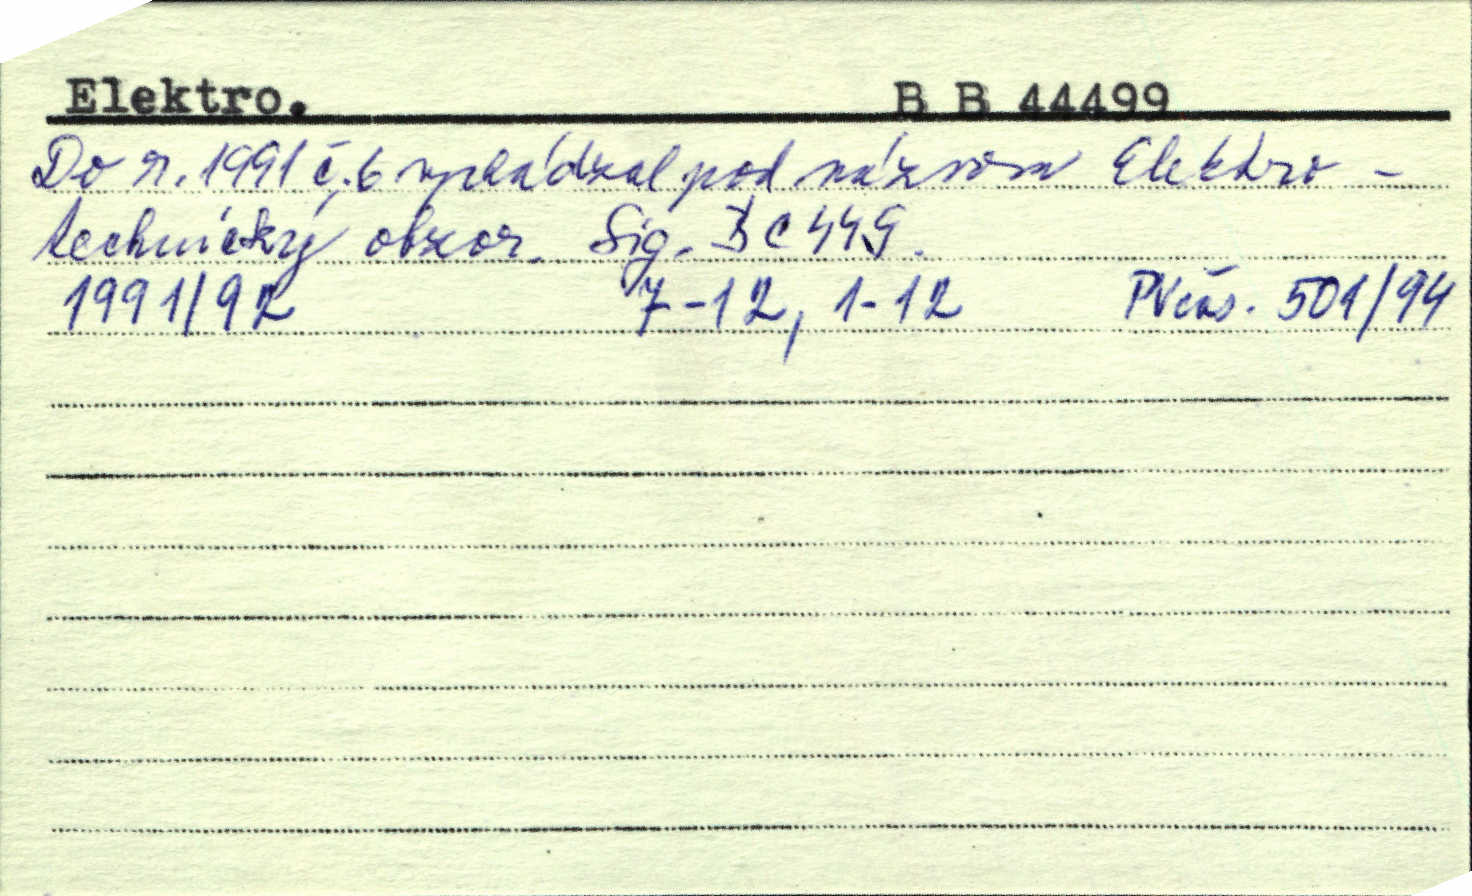 Elektro. B B 44499
Do r. 1991 č. 6 vychádzal pod názvom Elektro-
technický obzor. Sig. B C 449.
1991/92 7-12, 1-12 PVčas. 501/94